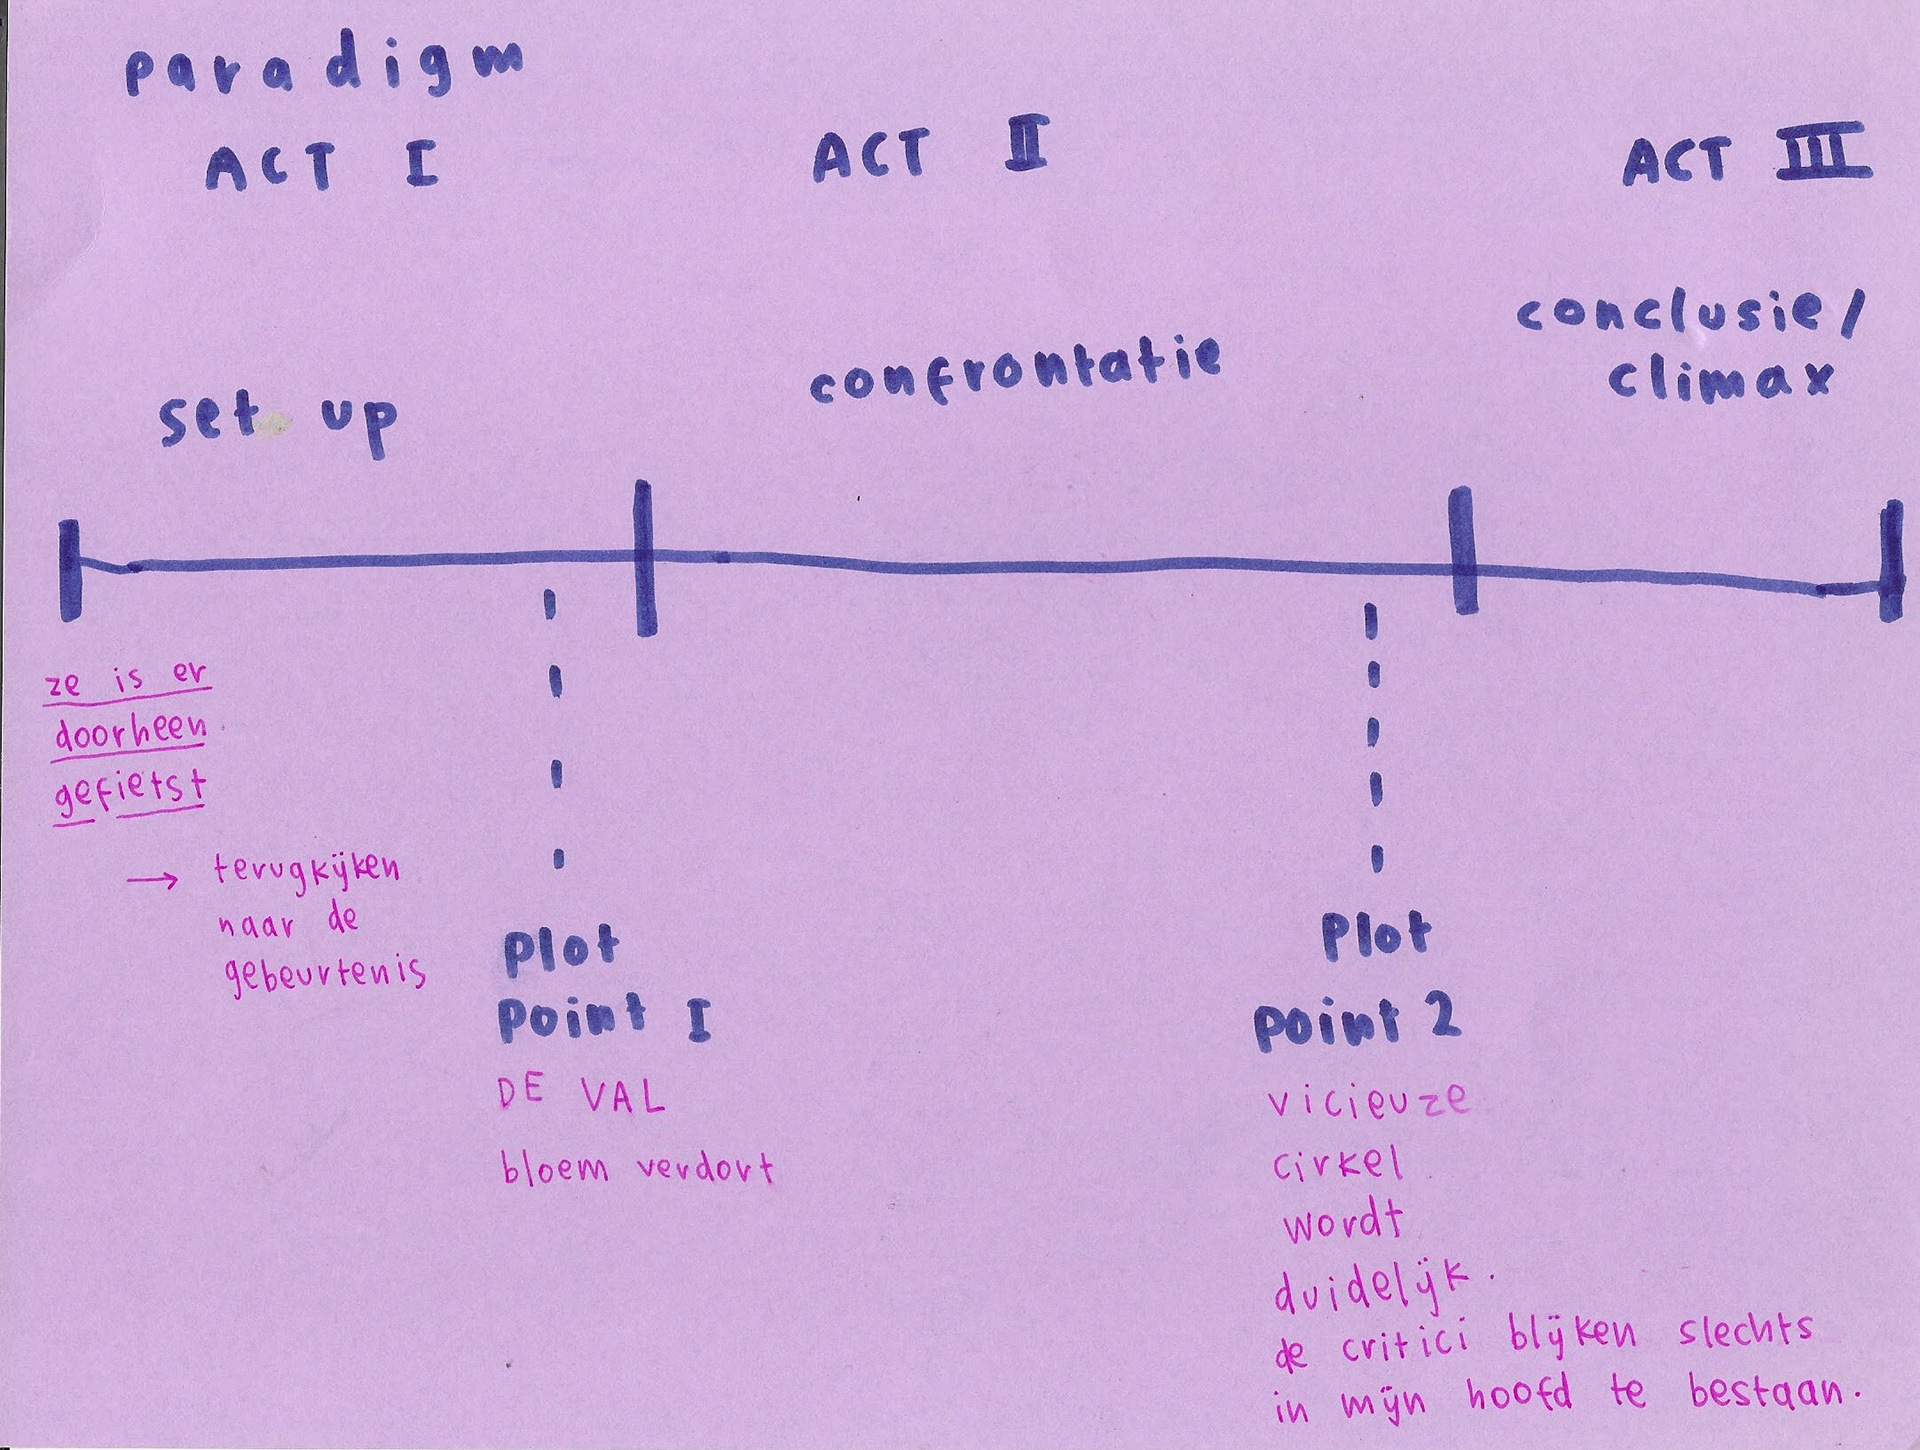 paradigm
ACT I
ACT II
ACT III
set up
confrontatie
conclusie/
climax
ze is er
doorheen
gefietst
→ terugkijken
naar de
gebeurtenis
plot
point I
DE VAL
bloem verdort
Plot
point 2
vicieuze
cirkel
wordt
duidelijk.
de critici blijken slechts
in mijn hoofd te bestaan.